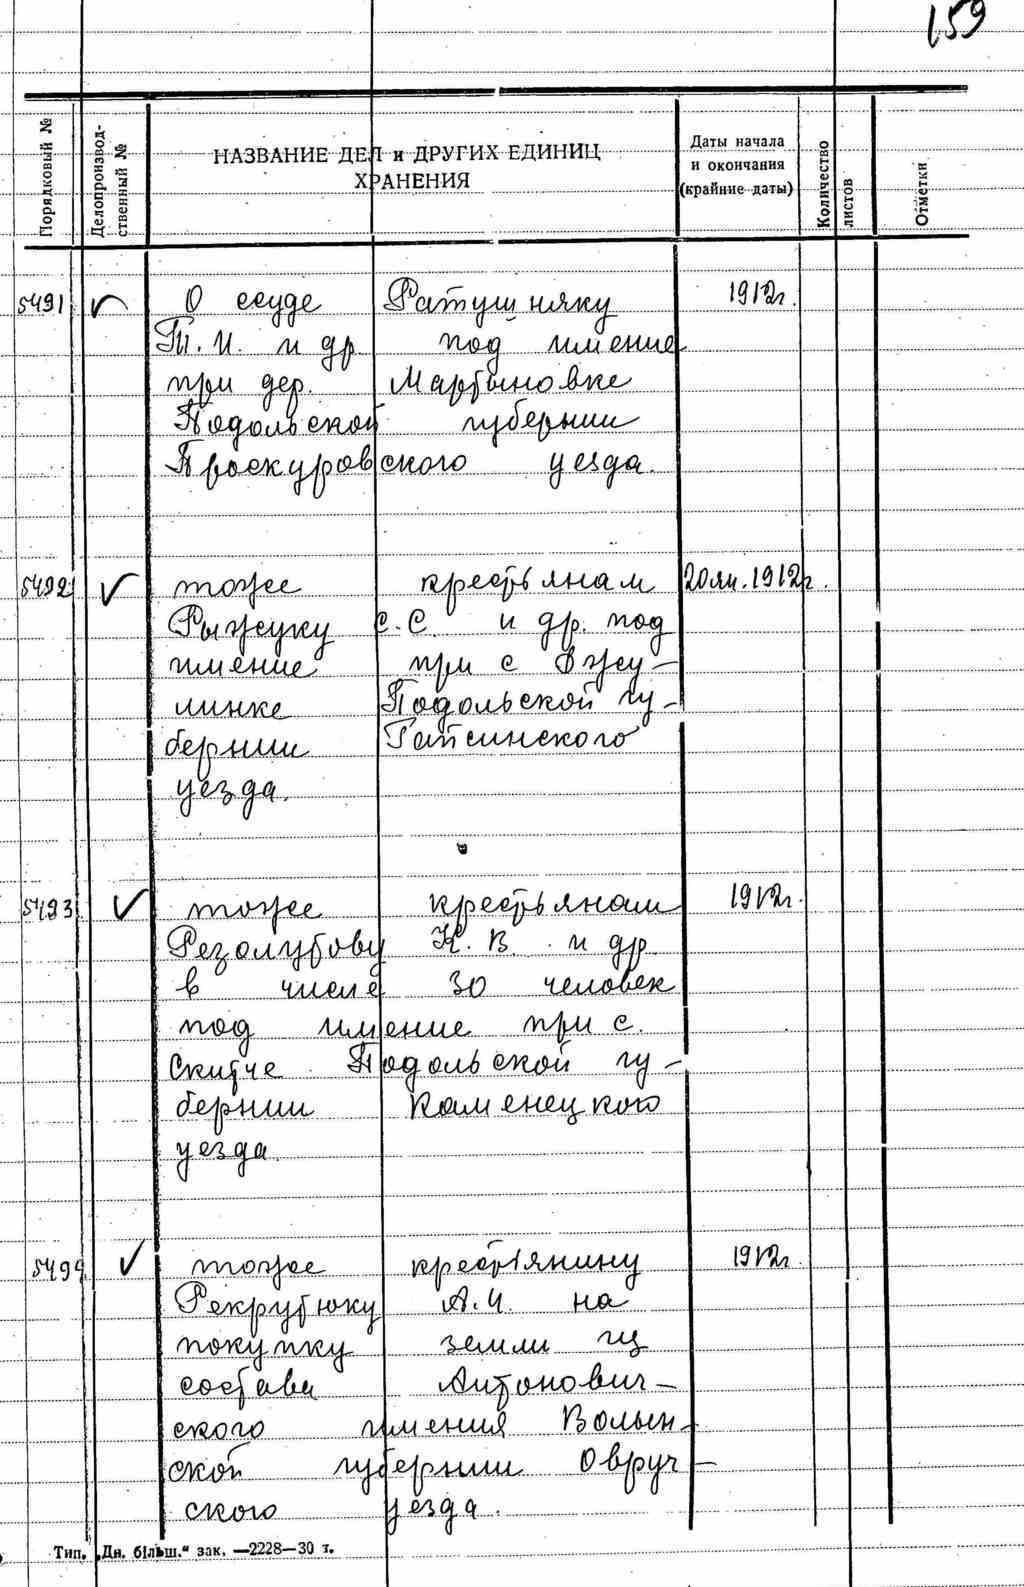 159
Порядковый №
Делопроизвод-
ственный №
НАЗВАНИЕ ДЕЛ и ДРУГИХ ЕДИНИЦ
ХРАНЕНИЯ
Даты начала
и окончания
(крайние даты)
Количество
листов
Отметки
5491 О ссуде Ратушняку 1912г.
Т.И. и др под имение
при дер. Мартыновке
Подольской губернии
Проскуровского уезда.
5492 тоже крестьянам 20 ян. 1912г.
Рыжуку С.С. и др. под
имение при с Вжу-
линке Подольской гу-
бернии Гайсинского
уезда.
5493 тоже крестьянам 1912г.
Резолутову К.В. и др
в числе 30 человек
под имение при с.
Скитче Подольской гу-
бернии Каменецкого
уезда.
5494 тоже крестьянину 1912г.
Рекрутюку А.И. на
покупку земли из
состава Антонович-
ского имения Волын-
ской губернии Овруч-
ского уезда.
Тип. „Дн. більш.“ зак. —2228—30 т.